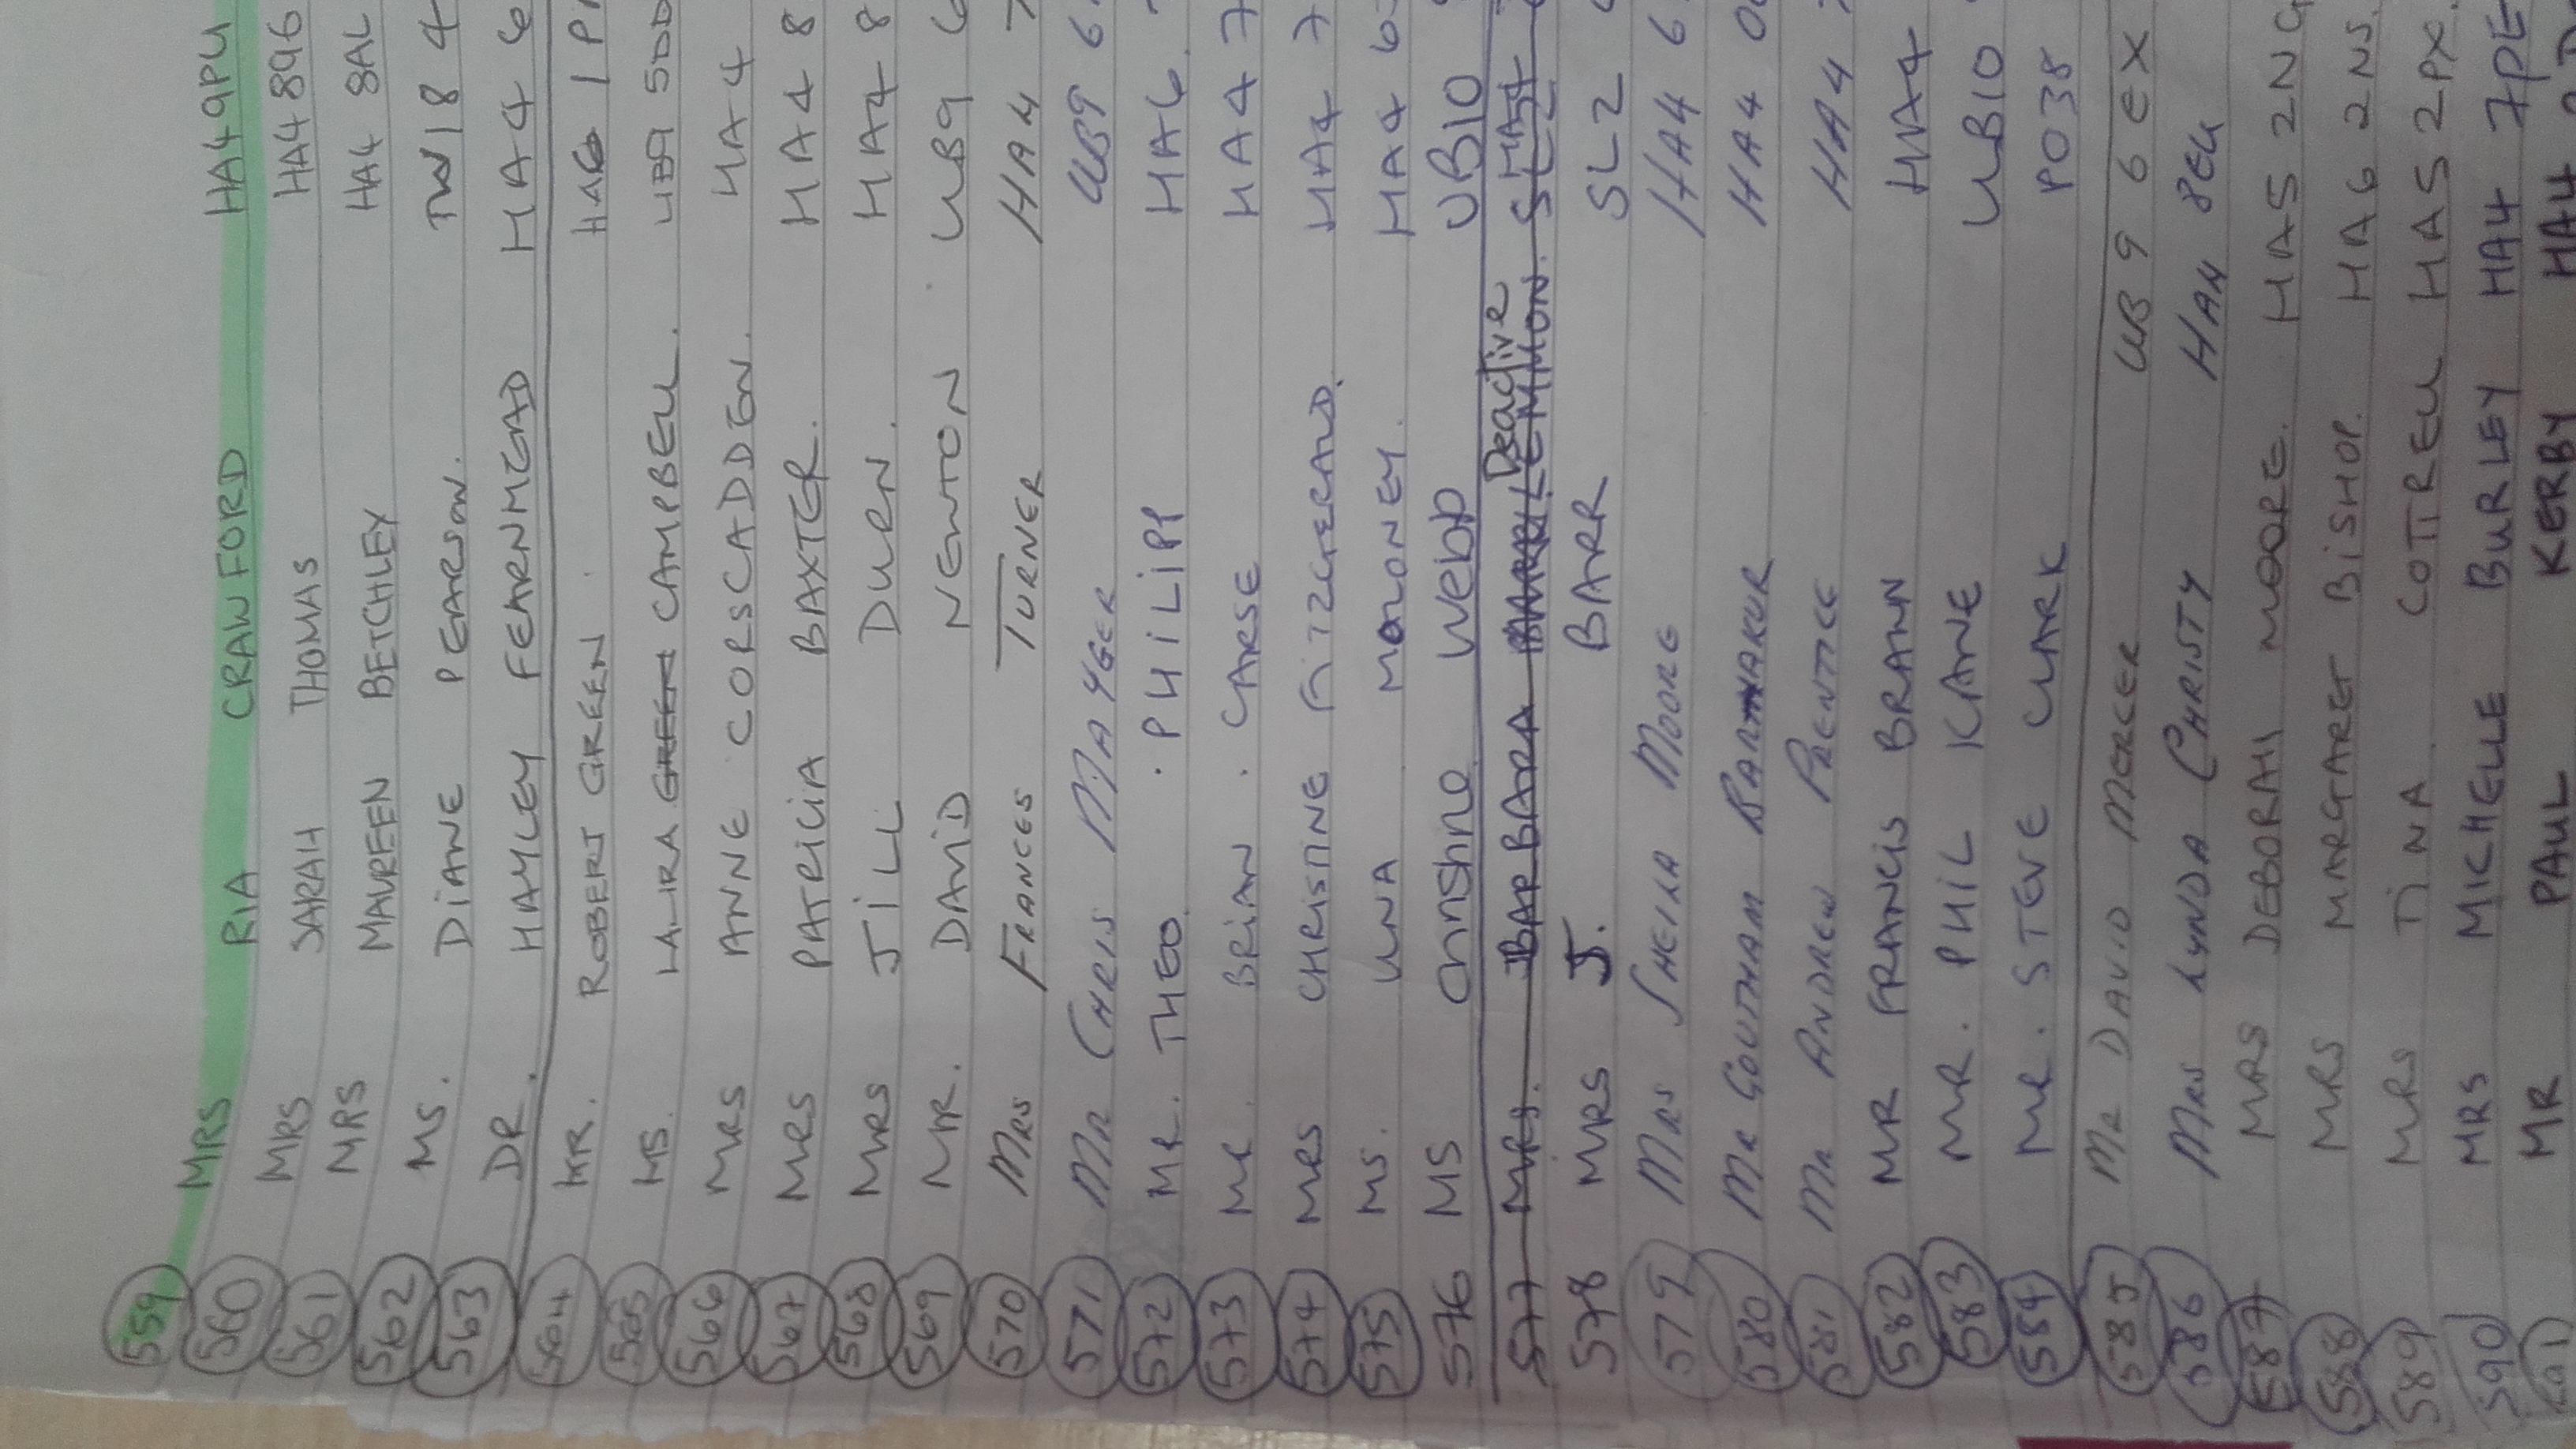 559 MRS RIA CRAWFORD HA4 9PU
560 MRS SARAH THOMAS HA4 896
561 MRS MAUREEN BETCHLEY HA4 8AL
562 MS. DIANE PEARSON. TW18 4
563 DR. HAYLEY FEARNHEAD HA4 6
564 MR. ROBERT GREEN HA6 1P
565 MS. LAURA GREEN CAMPBELL. UB9 5DD
566 MRS ANNE CORSCADDEN. HA4
567 MRS PATRICIA BAXTER. HA4 8
568 MRS JILL DURN. HA4 8
569 MR. DAVID NEWTON UB9 6
570 MRS FRANCES TURNER HA4 7
571 MR CHRIS MAYGER UB9 6
572 MR. THEO. PHILIPP HA6.
573 MR. BRIAN. CARSE HA4 7
574 MRS CHRISTINE FITZGERALD. HA4 7
575 MS. UNA MOLONEY. HA4 6
576 MS Christine Webb UB10
Deactive HA4
577 MRS. BARBARA LEMMON. SL2
578 MRS J. BARR SL2
579 MRS SHEILA MOORE HA4 6
580 MR GOUTHAM BARTHAKUR HA4 0
581 MR ANDREW PRENTICE HA4
582 MR FRANCIS BRANN HA4
583 MR. PHIL KANE UB10
584 MR. STEVE CLARK PO38
585 MR DAVID MERCER UB9 6EX
586 MRS LYNDA CHRISTY HA4 8EU
587 MRS DEBORAH MOORE. HA5 2NG
588 MRS MARGARET BISHOP. HA6 2NS.
589 MRS TINA. COTTRELL HA5 2PX.
590 MRS MICHELLE BURLEY HA4 7PE
591 MR PAUL KERBY HA4